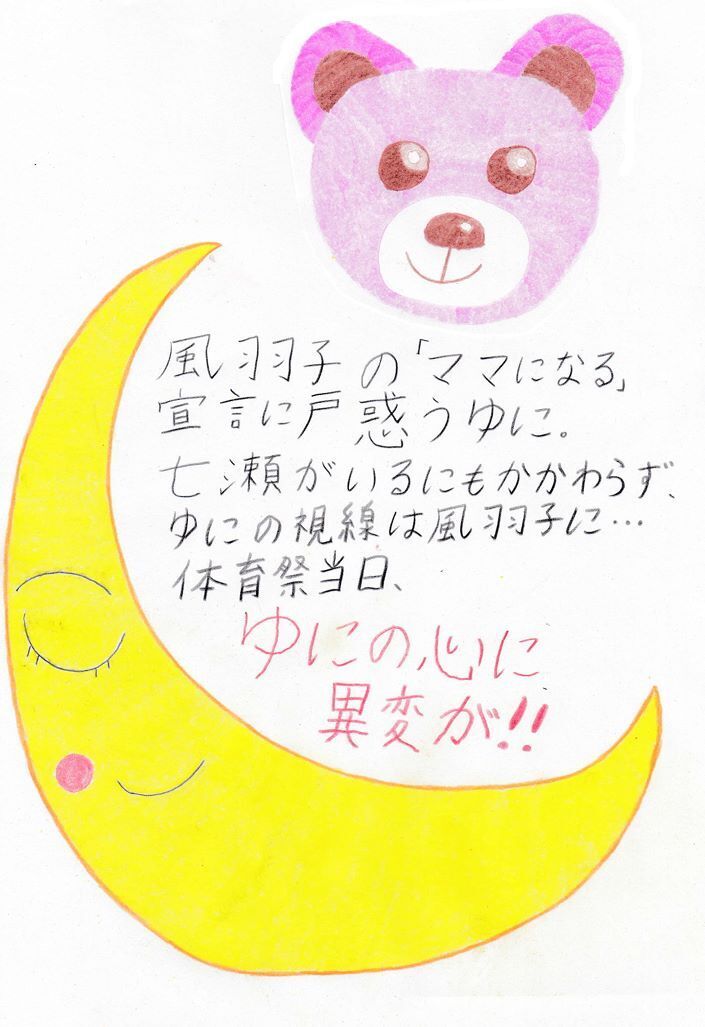 風羽子の「ママになる」
宣言に戸惑うゆに。
七瀬がいるにもかかわらず、
ゆにの視線は風羽子に…
体育祭当日、
ゆにの心に
異変が!!